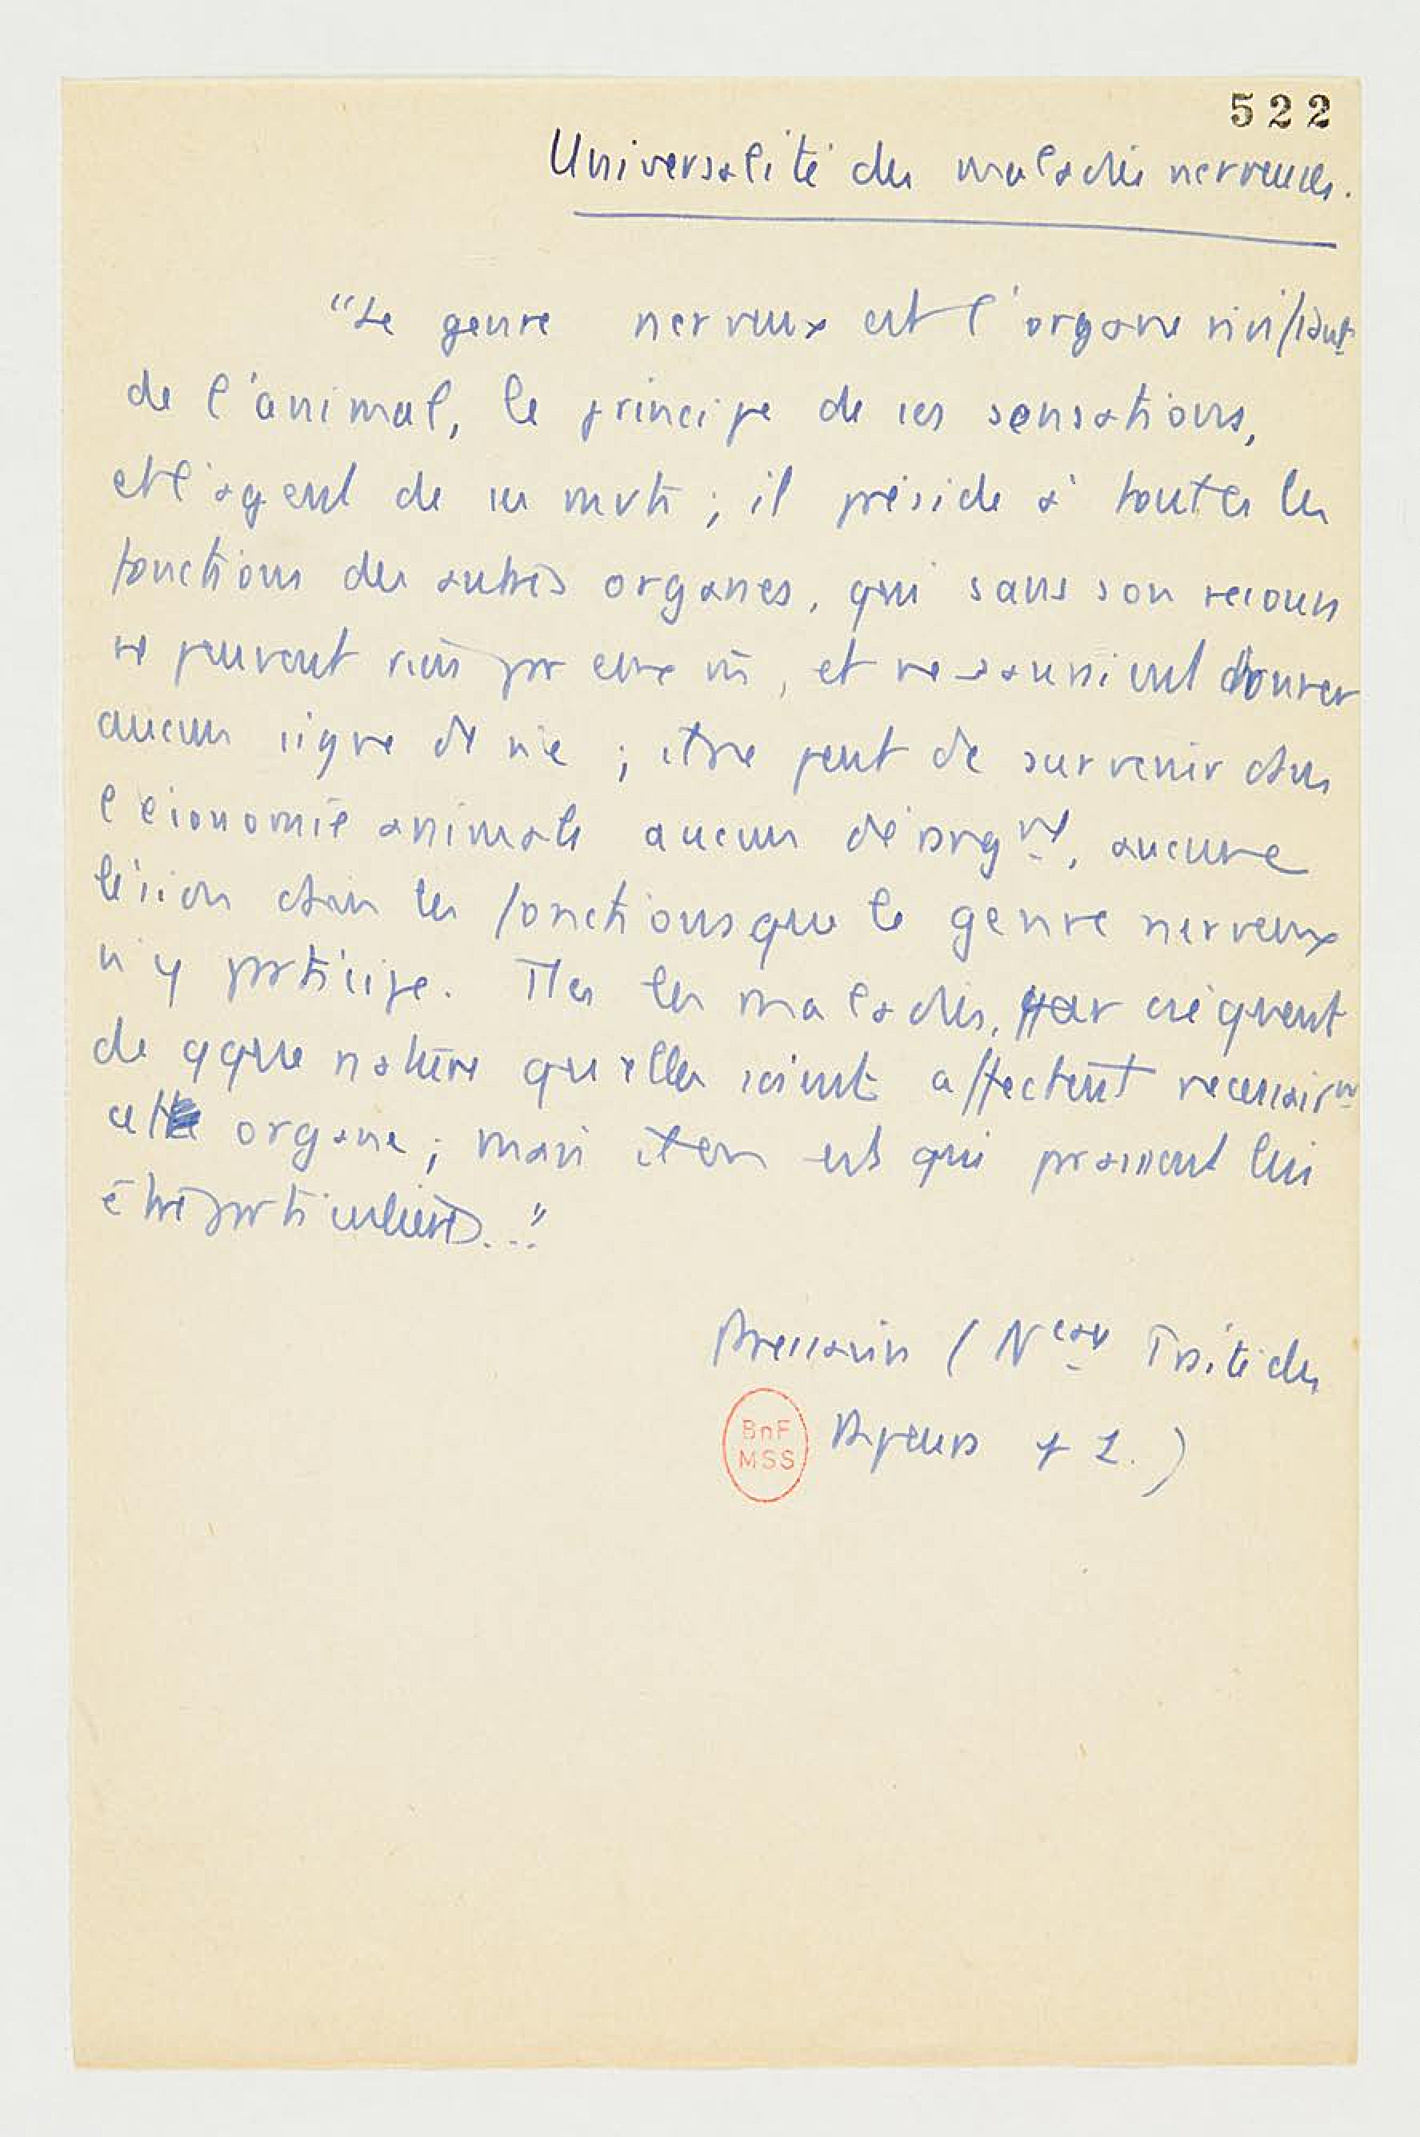 522
Universalité des maladies nerveuses.
"Le genre nerveux est l'organe vivifiant
de l'animal, le principe de ses sensations,
et l'agent de ses mvts ; il préside à toutes les
fonctions des autres organes, qui sans son secours
ne peuvent rien par eux m̄, et ne sauraient donner
aucun signe de vie ; il ne peut de survenir dans
l'économie animale aucun désorgnt, aucune
lésion dans les fonctions que le genre nerveux
n'y participe. Ttes les maladies, par cséquent
de qque nature qu'elles soient affectent nécessairt
cet organe ; mais il en est qui paraissent lui
être particulières..."
Pressavin (Neau Traité des
Vapeurs p 1.)
BnF
MSS